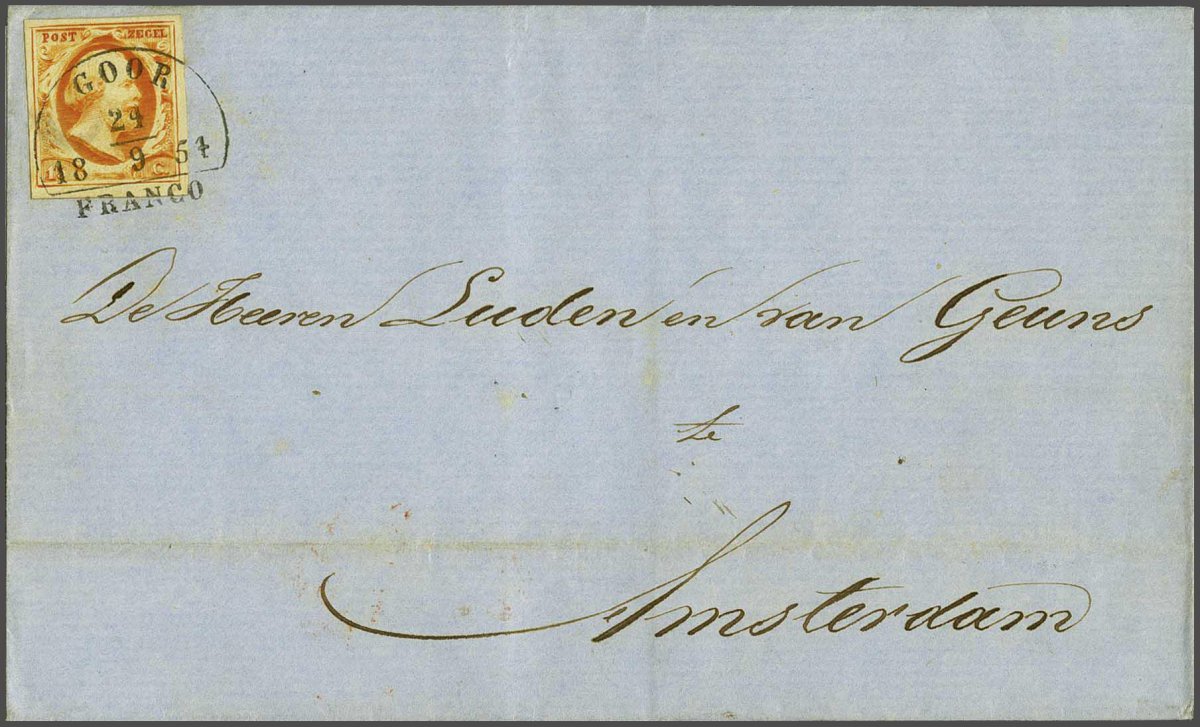 POST ZEGEL
GOOR
24
18 9 54
C.
FRANCO
De Heeren Luden en van Geuns
te
Amsterdam